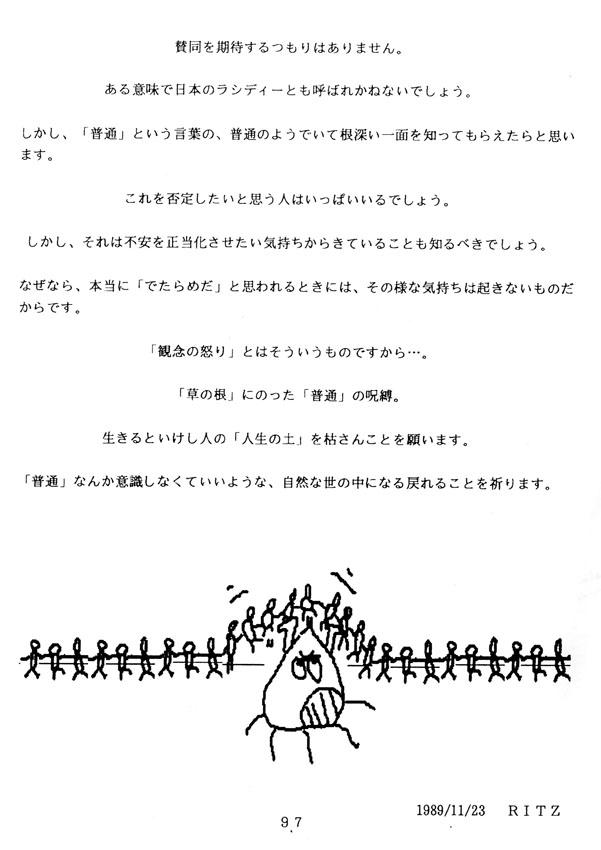 賛同を期待するつもりはありません。
ある意味で日本のラシディーとも呼ばれかねないでしょう。
しかし、「普通」という言葉の、普通のようでいて根深い一面を知ってもらえたらと思い
ます。
これを否定したいと思う人はいっぱいいるでしょう。
しかし、それは不安を正当化させたい気持ちからきていることも知るべきでしょう。
なぜなら、本当に「でたらめだ」と思われるときには、その様な気持ちは起きないものだ
からです。
「観念の怒り」とはそういうものですから…。
「草の根」にのった「普通」の呪縛。
生きるといけし人の「人生の土」を枯さんことを願います。
「普通」なんか意識しなくていいような、自然な世の中になる戻れることを祈ります。
1989/11/23 ＲＩＴＺ
９７